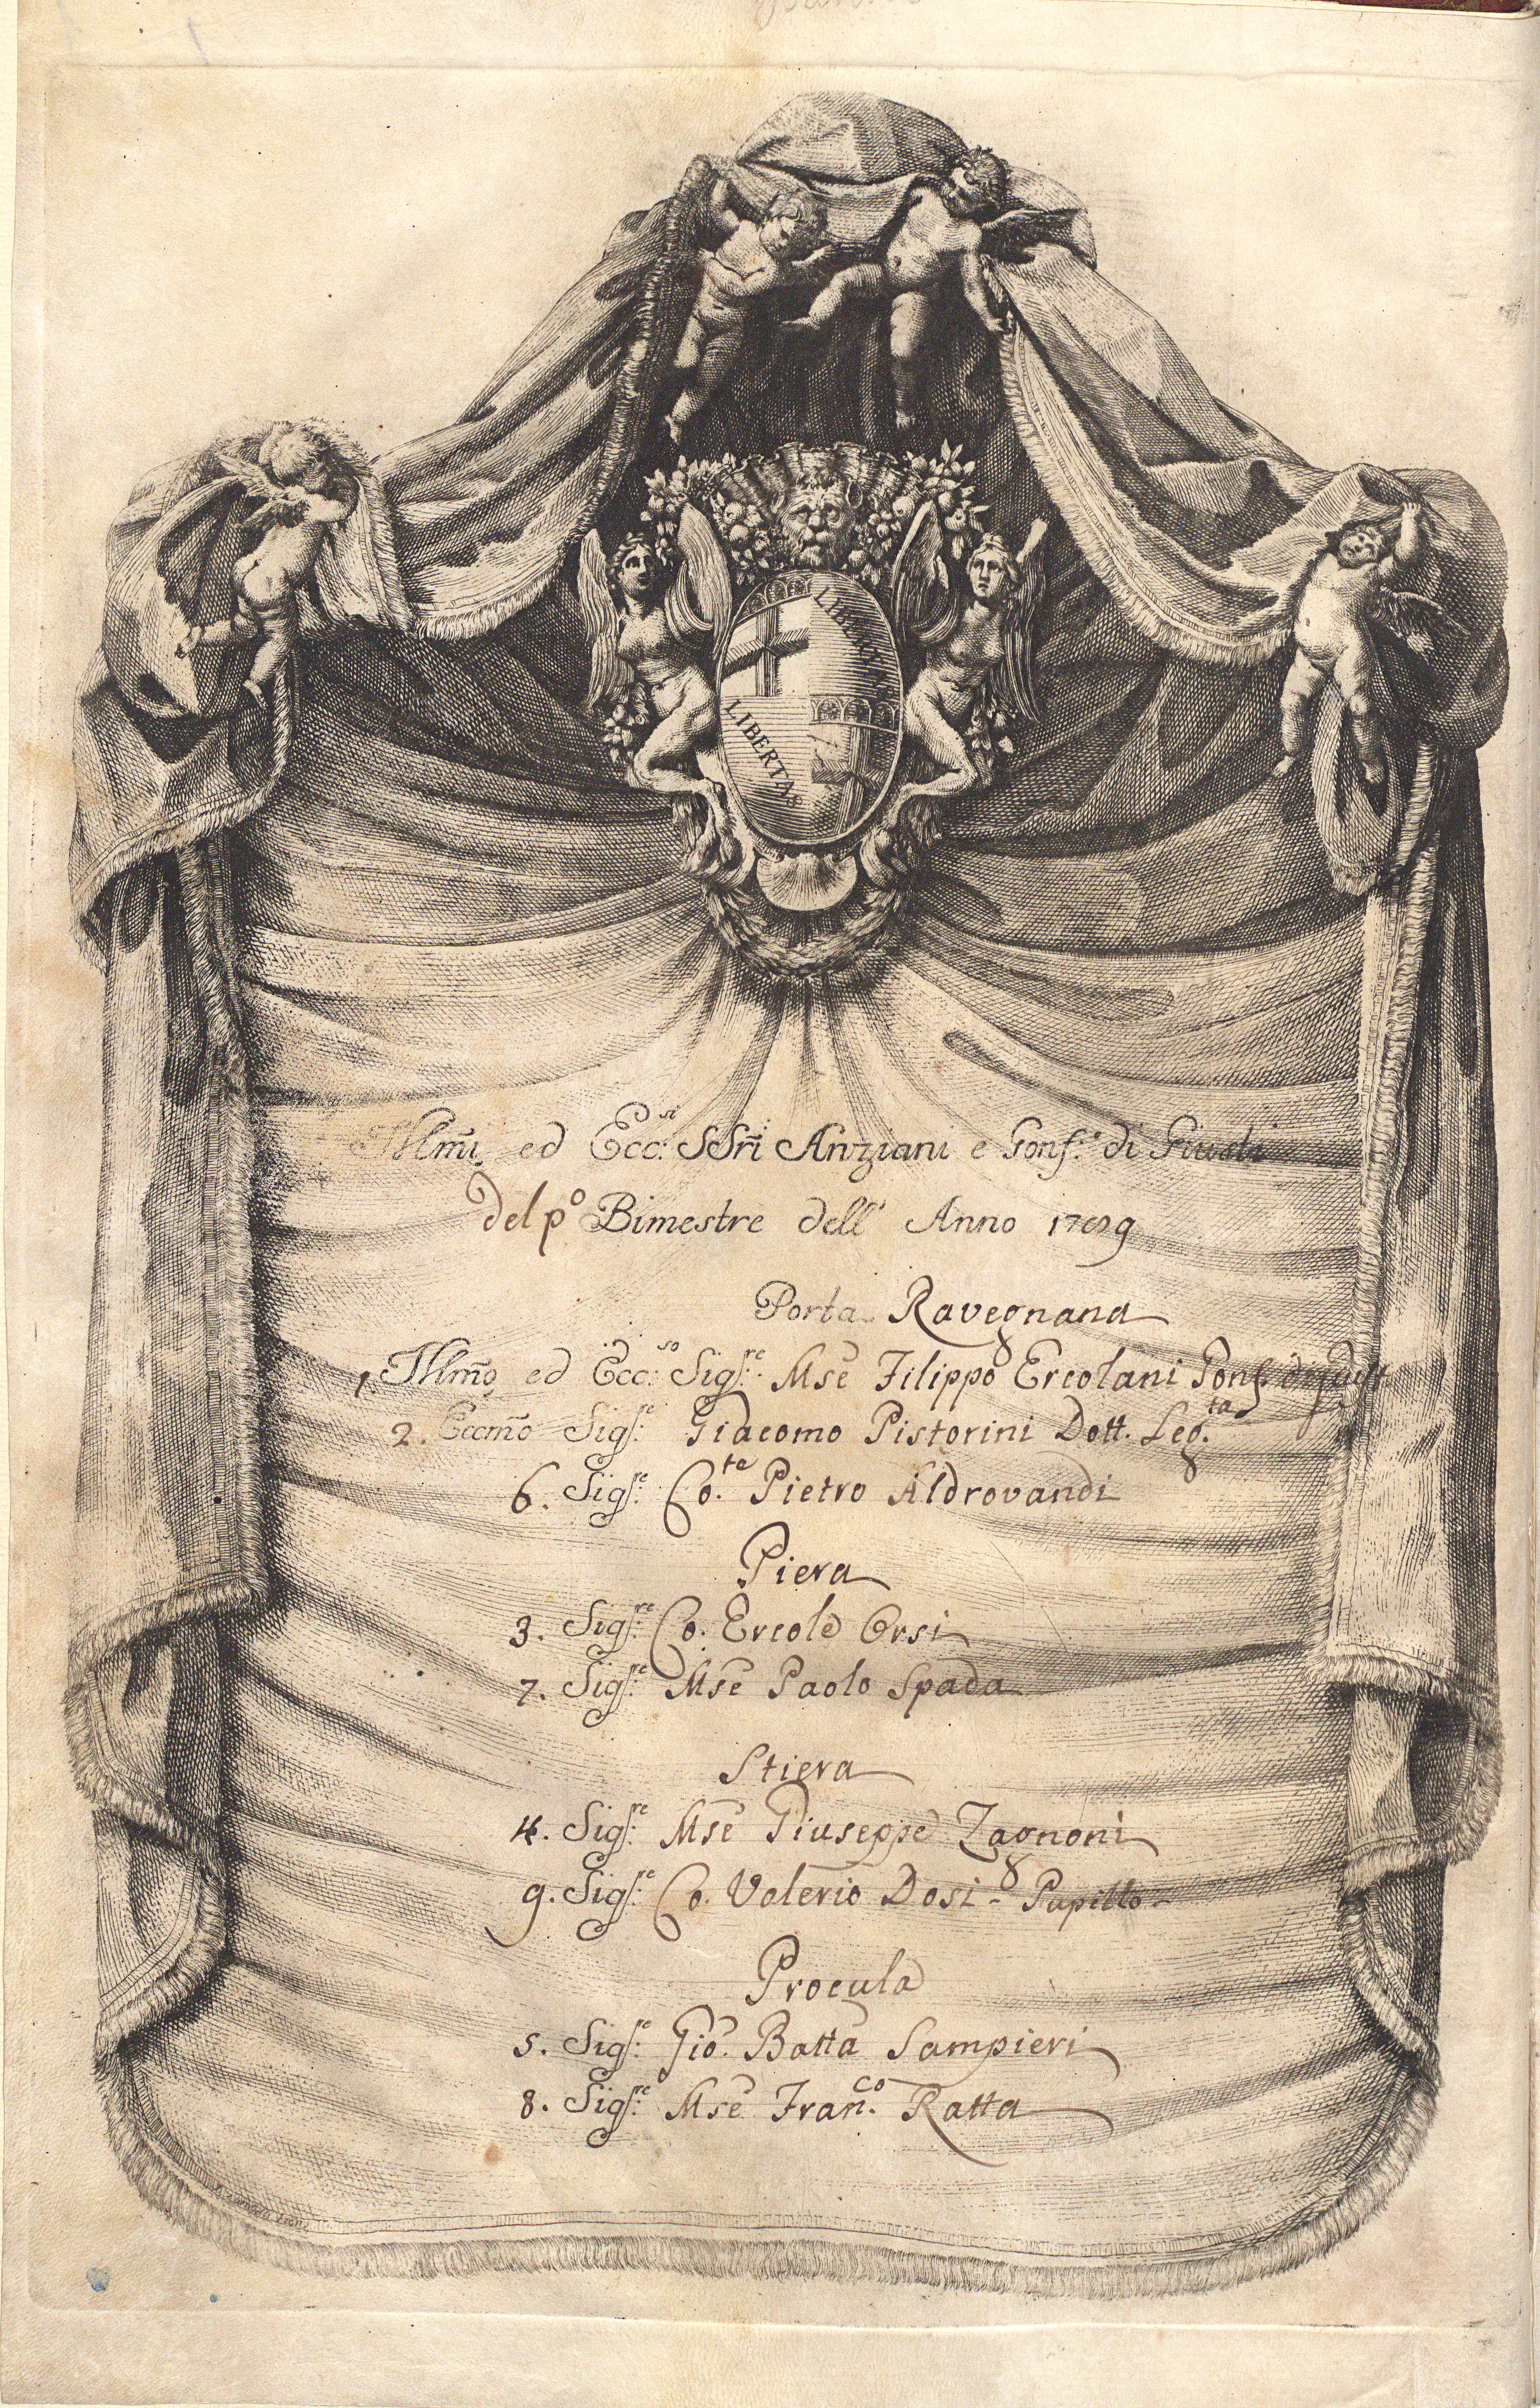 LIBERTAS
LIBERTAS
Illm̃i ed Ecc:si SSrĩ Anziani e Gonf:e di Giust:a
Del p.o Bimestre dell' Anno
Porta Ravegnana
1, Illm̃o ed Ecc:so Sig:re Mse Filippo Ercolani Gonf. di Giust
2. Eccm̃o Sig:re Giacomo Pistorini Dott. Leg.ta
6. Sig:re Co.te Pietro Aldrovandi
Piera
3. Sig:re Co. Ercole Orsi
7. Sig:re Mse Paolo Spada
Stiera
4. Sig:re Mse Giuseppe Zagnoni
9. Sig:re Co. Valerio Dosi - Pupillo -
Procula
5. Sig:re Gio. Batta Sampieri
8. Sig:re Mse Fran.co Ratta